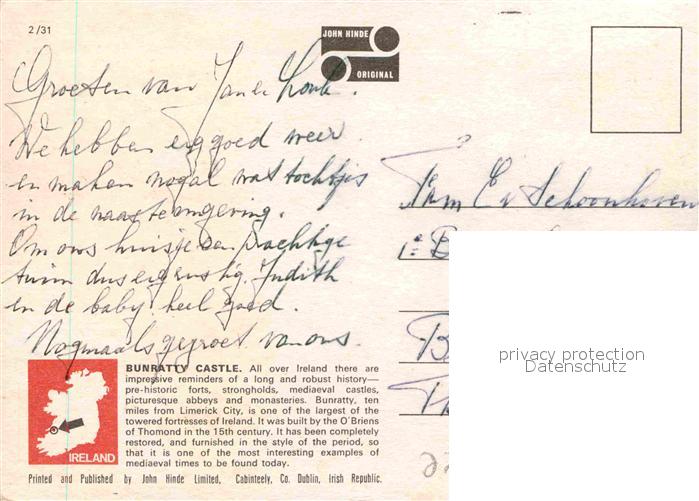 2/31
JOHN HINDE
ORIGINAL
Groeten van Jan en
We hebben erg goed weer
en maken nogal wat tochtjes
in de naaste omgeving.
Om ons huisje een prachtige
tuin dus erg rustig. Judith
en de baby heel goed.
Nogmaals gegroet van ons.
Fam E v Schoonhoven
privacy protection
Datenschutz
IRELAND
BUNRATTY CASTLE. All over Ireland there are
impressive reminders of a long and robust history—
pre-historic forts, strongholds, mediaeval castles,
picturesque abbeys and monasteries. Bunratty, ten
miles from Limerick City, is one of the largest of the
towered fortresses of Ireland. It was built by the O'Briens
of Thomond in the 15th century. It has been completely
restored, and furnished in the style of the period, so
that it is one of the most interesting examples of
mediaeval times to be found today.
Printed and Published by John Hinde Limited, Cabinteely, Co. Dublin, Irish Republic.